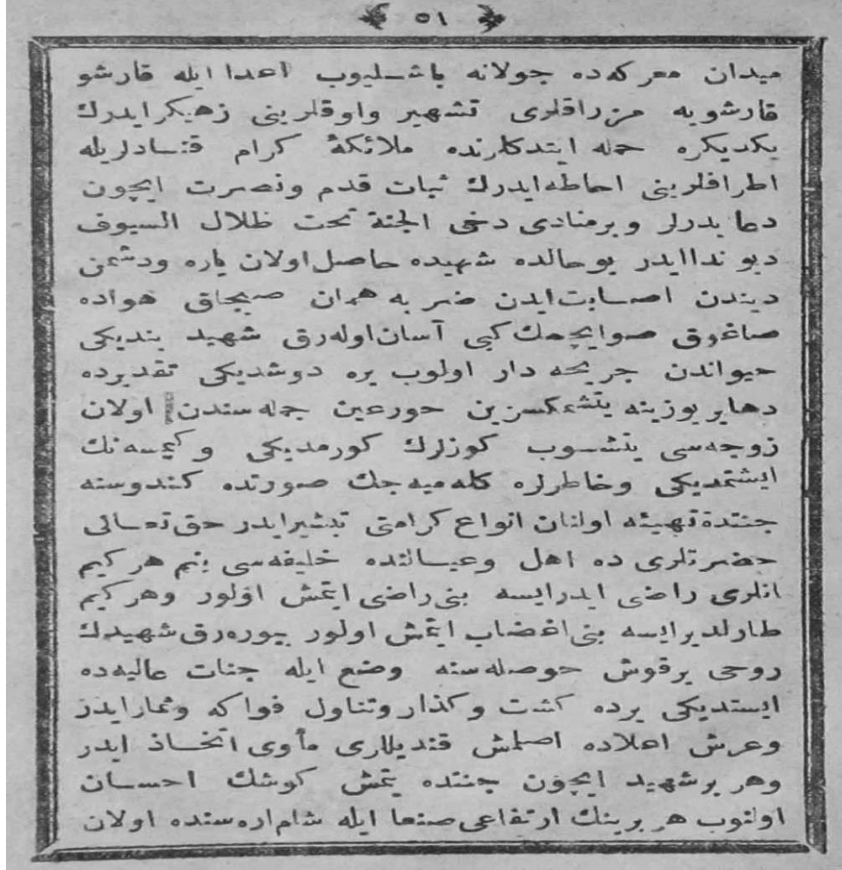 ٥١
میدان معرکه‌ده جولانه باشلیوب اعدا ایله قارشو
قارشویه مزراقلری تشهیر واوقلرینی زهکیر ایدرك
یکدیکره حمله ایتدکلرنده ملائکهٔ کرام قنادلریله
اطرافلرینی احاطه ایدرك ثبات قدم ونصرت ایچون
دعا ایدرلر وبرمنادی دخی الجنة تحت ظلال السیوف
دیو ندا ایدر بوحالده شهیده حاصل اولان یاره ودشمن
دیندن اصابت ایدن ضربه همان صیجاق هواده
صاغوق صو ایچمك کبی آسان اوله‌رق شهید بندیکی
حیواندن جریحه دار اولوب یره دوشدیکی تقدیرده
دها یر یوزینه یتشمکسزین حورعین جمله‌سندن اولان
زوجه‌سی یتشوب کوزلرك کورمدیکی وکیمسه‌نك
ایشتمدیکی وخاطرلره کله‌میه‌جك صورتده کندوسنه
جنتده تهیئه اولنان انواع کرامتی تبشیر ایدر حق تعالی
حضرتلری ده اهل وعیالنده خلیفه‌سی بنم هر کیم
انلری راضی ایدرایسه بنی راضی ایتمش اولور وهر کیم
طارلدیرایسه بنی اغضاب ایتمش اولور بیوره‌رق شهیدك
روحی برقوش حوصله‌سنه وضع ایله جنات عالیه‌ده
ایستدیکی یرده کشت وکذار وتناول فواکه وثمار ایدر
وعرش اعلاده اصلمش قندیللری مأوی اتخاذ ایدر
وهر برشهید ایچون جنتده یتمش کوشك احسان
اولنوب هر برینك ارتفاعی صنعا ایله شام اره‌سنده اولان